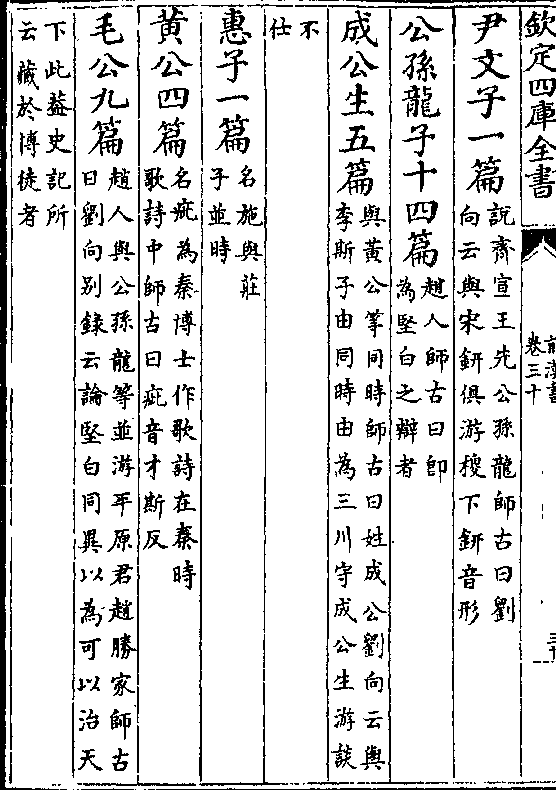 欽定四庫全書
前漢書
卷三十
尹文子一篇說齊宣王先公孫龍師古曰劉
向云與宋鈃俱游稷下鈃音形
公孫龍子十四篇趙人師古曰卽
為堅白之辯者
成公生五篇與黃公等同時師古曰姓成公劉向云與
李斯子由同時由為三川守成公生游談
不
仕
惠子一篇名施與莊
子並時
黃公四篇名疵為秦博士作歌詩在秦時
歌詩中師古曰疵音才斯反
毛公九篇趙人與公孫龍等並游平原君趙勝家師古
曰劉向别錄云論堅白同異以為可以治天
下此葢史記所
云藏於博徒者